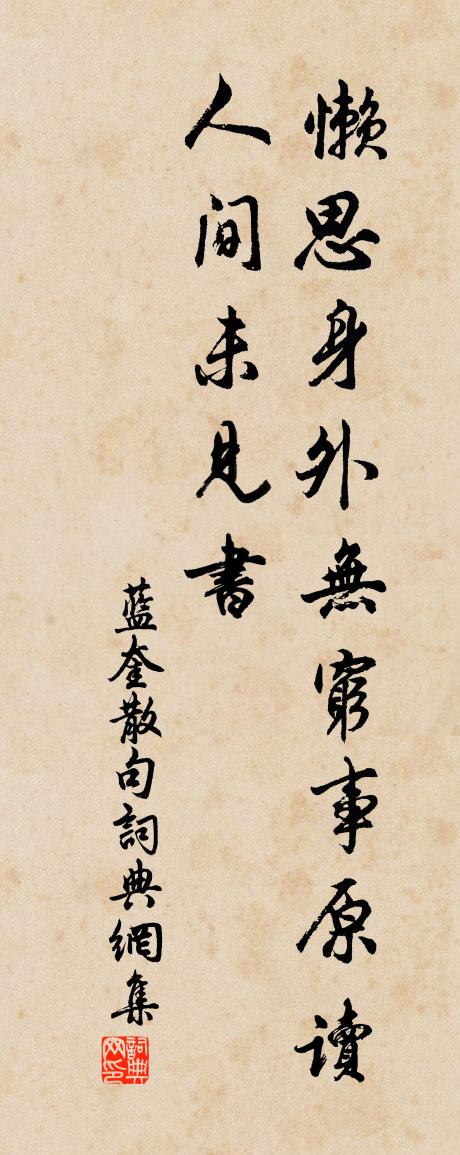 懶思身外無窮事原讀
人間未見書
藍奎散句詞典網集
詞典网印